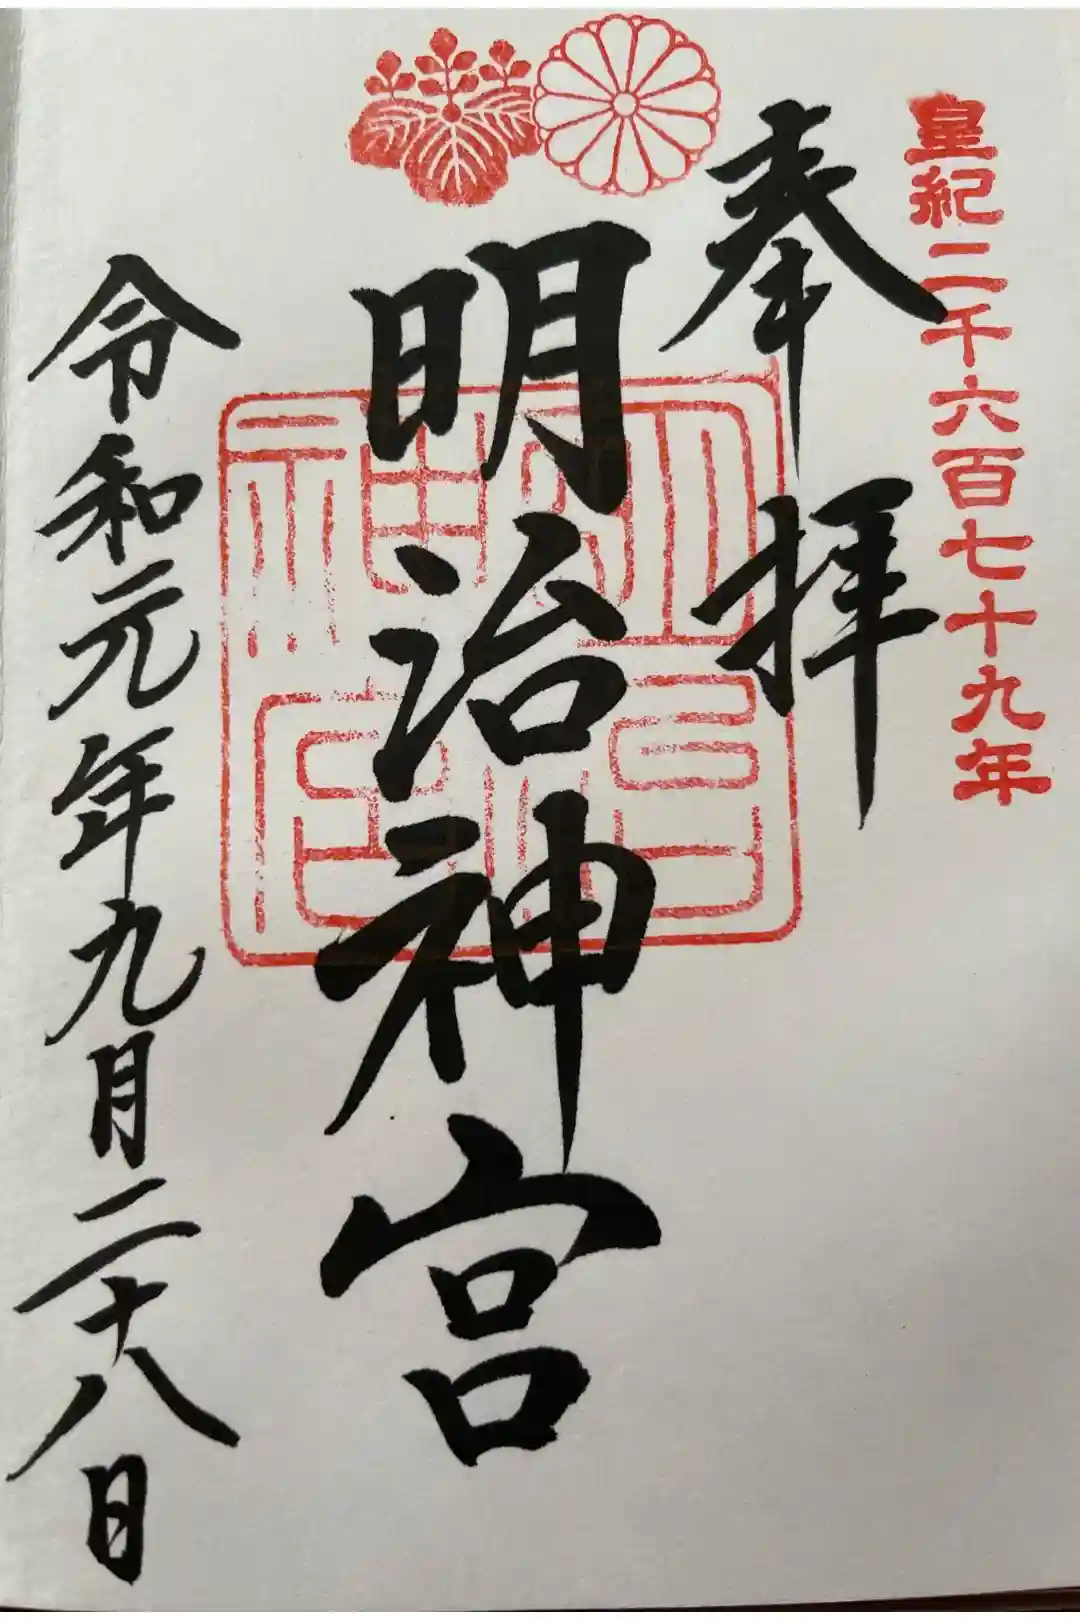 皇紀二千六百七十九年
奉拝
明治神宮
明治神宮
令和元年九月二十八日